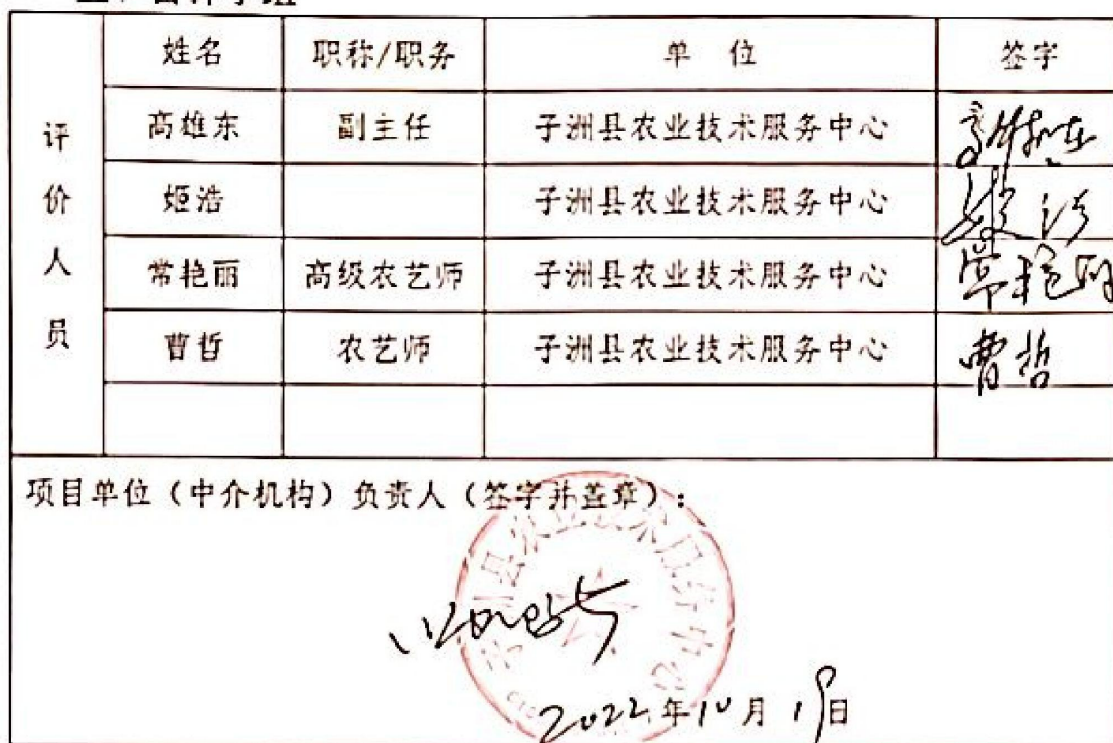 姓名 职称/职务 单 位 签字
评价人员
高雄东 副主任 子洲县农业技术服务中心 高雄东
姬浩 子洲县农业技术服务中心 姬浩
常艳丽 高级农艺师 子洲县农业技术服务中心 常艳丽
曹哲 农艺师 子洲县农业技术服务中心 曹哲
项目单位（中介机构）负责人（签字并盖章）：
子洲县农业技术服务中心
2022年10月19日